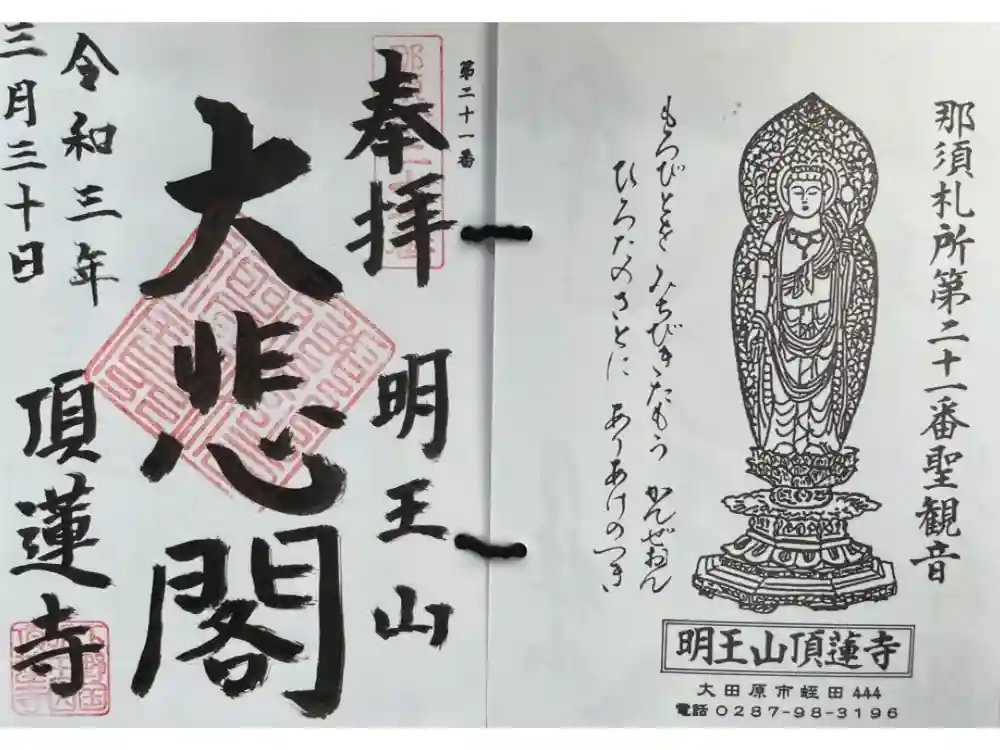 那須札所第二十一番聖観音
もろびとを みちびきたもう かんぜおん
ひろたのさとに ありあけのつき
明王山頂蓮寺
大田原市蛭田444
電話0287-98-3196
第二十一番
奉拝 明王山
大悲閣
令和三年
三月三十日
頂蓮寺